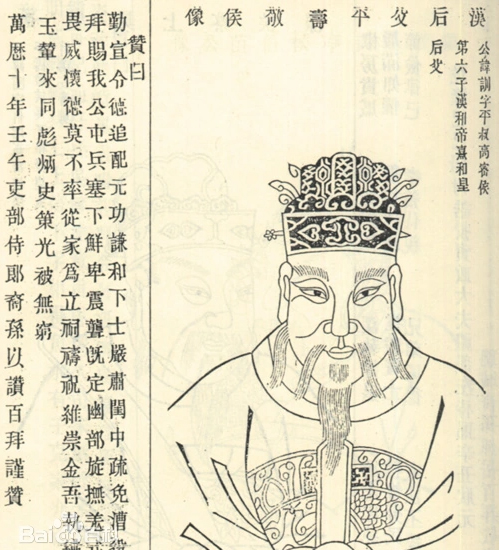 漢后父平壽敬侯像
公諱訓字平叔高密侯
第六子漢和帝熹和皇
后父
贊曰
勤宣令德追配元功謙和下士嚴肅閨中疏免漕
拜賜我公屯兵塞下鮮卑震聾旣定幽部旋撫羌
畏威懷德莫不率從家爲立祠禱祝維崇金吾執
玉輦來同彪炳史策光被無窮
萬厯十年壬午吏部侍郎裔孫以讚百拜謹贊